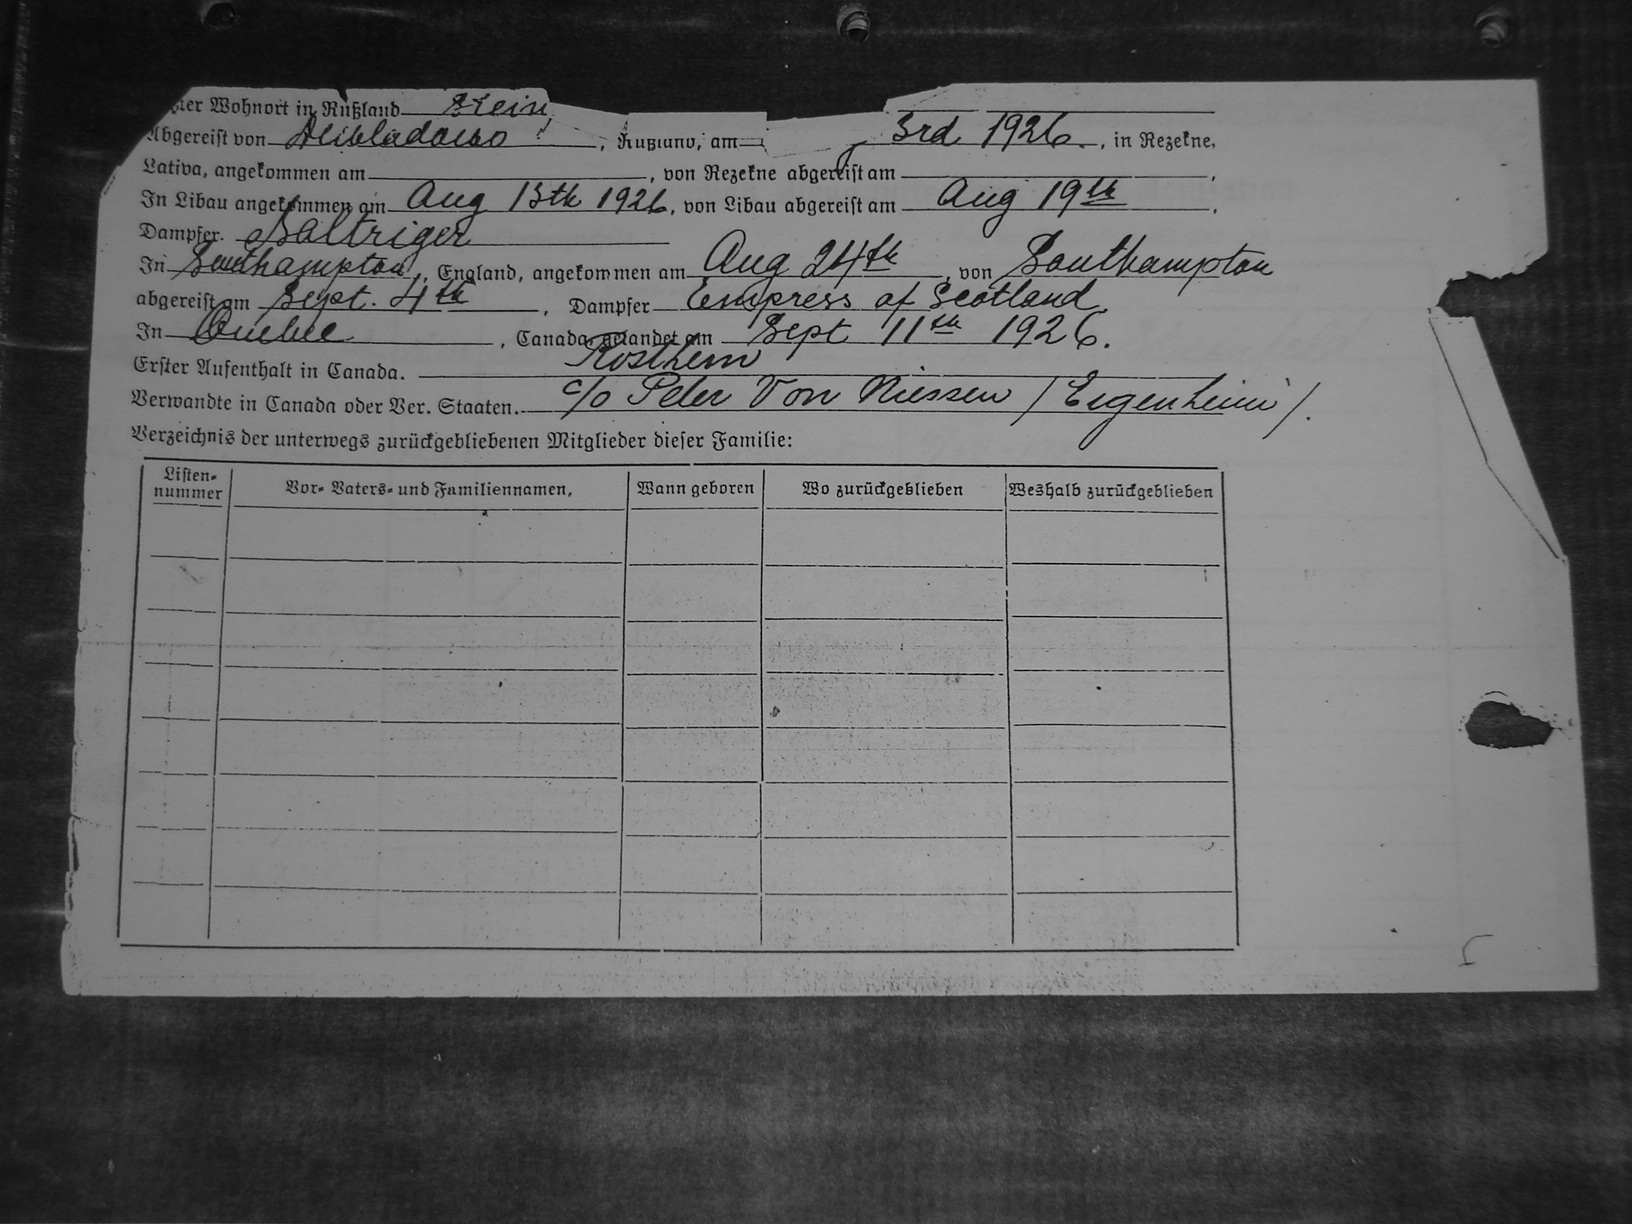 Wohnort in Rußland Stein
Abgereist von , Rußland, am 3rd 1926., in Rezekne,
Lativa, angekommen am , von Rezekne abgereist am ,
In Libau angekommen am Aug 13th 1926, von Libau abgereist am Aug 19th .
Dampfer. Baltriger
In Southampton, England, angekommen am Aug 24th, von Southampton
abgereist am Sept. 4th , Dampfer Empress of Scotland
In Quebec , Canada, gelandet am Sept 11th 1926.
Erster Aufenthalt in Canada. Rosthern
Verwandte in Canada oder Ver. Staaten. c/o Peter Von Niessen / Eigenheim /.
Verzeichnis der unterwegs zurückgebliebenen Mitglieder dieser Familie:
Listen-nummer Vor- Vaters- und Familiennamen, Wann geboren Wo zurückgeblieben Weshalb zurückgeblieben